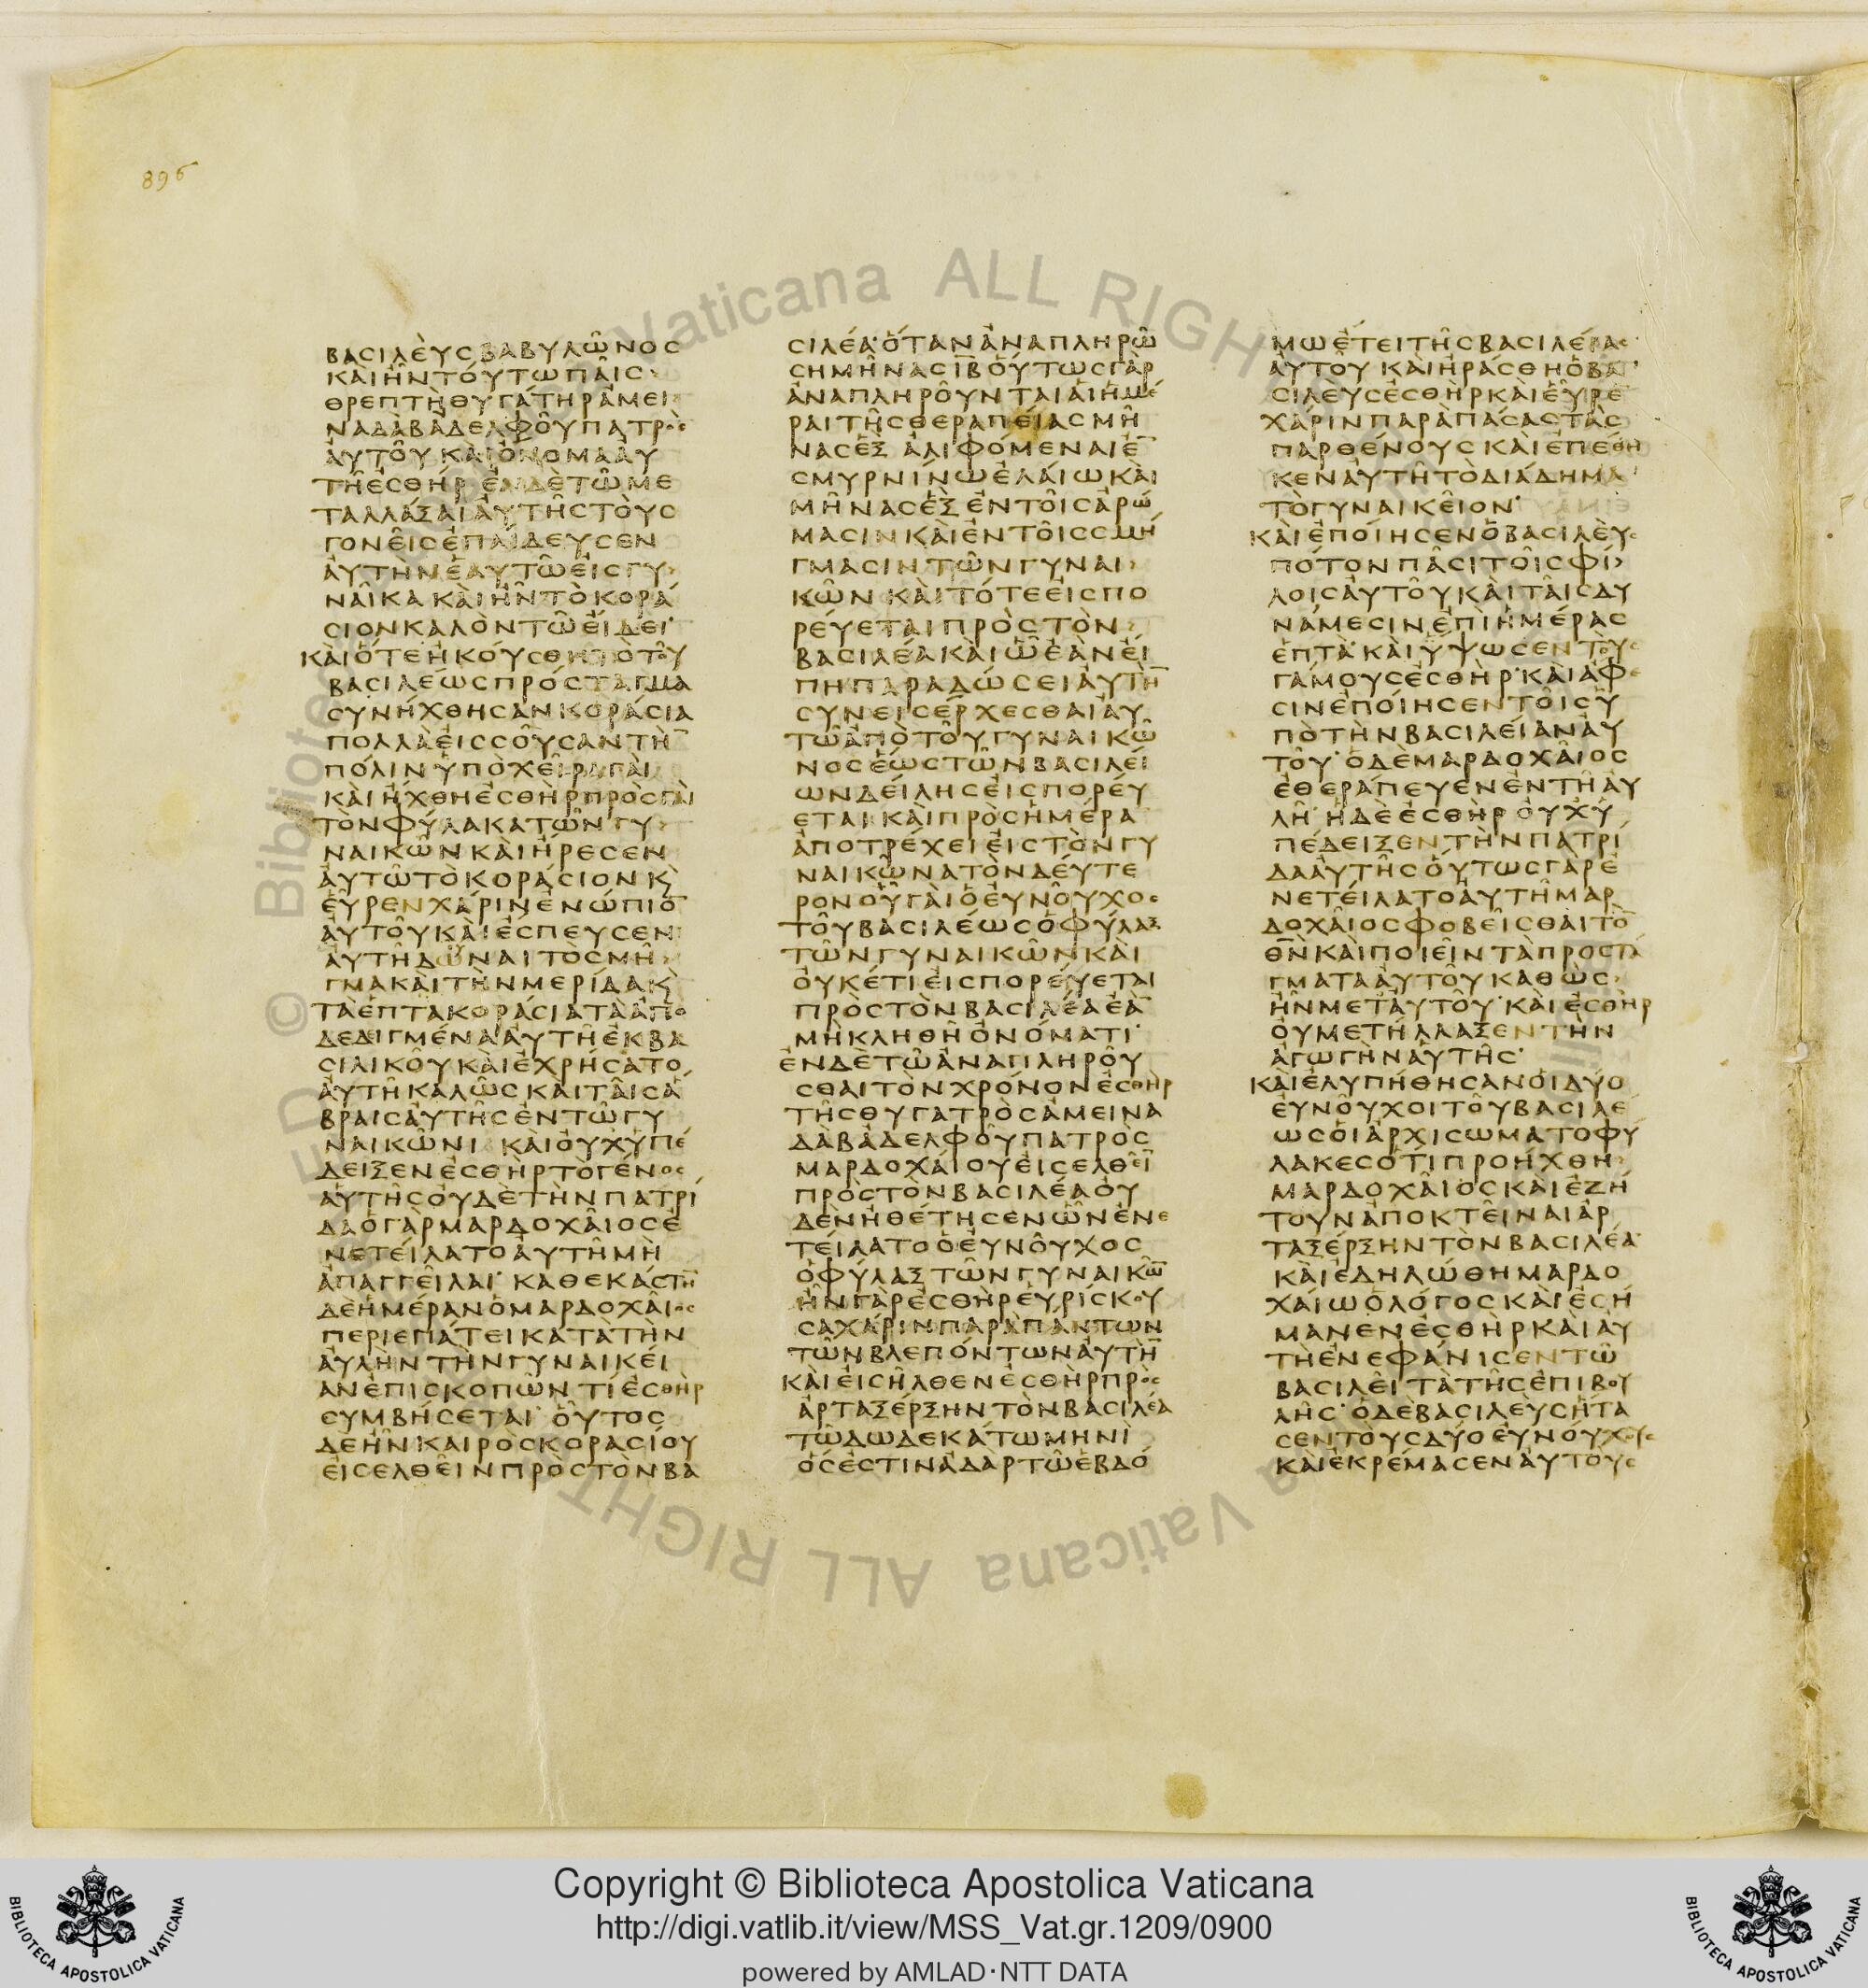 896
ΒΑCΙΛΕΥCΒΑΒΥΛΩΝΟC
ΚΑΙΗΝΤΟΥΤΩΠΑΙC
ΘΡΕΠΤΗΘΥΓΑΤΗΡΑΜΕΙ
ΝΑΔΑΒΑΔΕΛΦΟΥΠΑΤΡΟC
ΑΥΤΟΥΚΑΙΟΝΟΜΑΑΥ
ΤΗΕCΘΗΡ ΕΝΔΕΤΩΜΕ
ΤΑΛΛΑΞΑΙΑΥΤΗCΤΟΥC
ΓΟΝΕΙCΕΠΑΙΔΕΥCΕΝ
ΑΥΤΗΝΕΑΥΤΩΕΙCΓΥ
ΝΑΙΚΑΚΑΙΗΝΤΟΚΟΡΑ
CΙΟΝΚΑΛΟΝΤΩΕΙΔΕΙ
ΚΑΙΟΤΕΗΚΟΥCΘΗΤΟΤΟΥ
ΒΑCΙΛΕΩCΠΡΟCΤΑΓΜΑ
CΥΝΗΧΘΗCΑΝΚΟΡΑCΙΑ
ΠΟΛΛΑΕΙCCΟΥCΑΝΤΗ̅
ΠΟΛΙΝΥΠΟΧΕΙΡΑΓΑΙ
ΚΑΙΗΧΘΗΕCΘΗΡΠΡΟCΓΑΙ
ΤΟΝΦΥΛΑΚΑΤΩΝΓΥ
ΝΑΙΚΩΝΚΑΙΗΡΕCΕΝ
ΑΥΤΩΤΟΚΟΡΑCΙΟΝΚ
ΕΥΡΕΝΧΑΡΙΝΕΝΩΠΙΟ̅
ΑΥΤΟΥΚΑΙΕCΠΕΥCΕΝ
ΑΥΤΗΔΟΥΝΑΙΤΟCΜΗ
ΓΜΑΚΑΙΤΗΝΜΕΡΙΔΑΚ
ΤΑΕΠΤΑΚΟΡΑCΙΑΤΑΑΠΟ
ΔΕΔΙΓΜΕΝΑΑΥΤΗΕΚΒΑ
CΙΛΙΚΟΥΚΑΙΕΧΡΗCΑΤΟ
ΑΥΤΗΚΑΛΩCΚΑΙΤΑΙCΑ
ΒΡΑΙCΑΥΤΗCΕΝΤΩΓΥ
ΝΑΙΚΩΝΙ ΚΑΙΟΥΧΥΠΕ
ΔΕΙΞΕΝΕCΘΗΡΤΟΓΕΝΟC
ΑΥΤΗCΟΥΔΕΤΗΝΠΑΤΡΙ
ΔΑΟΓΑΡΜΑΡΔΟΧΑΙΟCΕ
ΝΕΤΕΙΛΑΤΟΑΥΤΗΜΗ
ΑΠΑΓΓΕΙΛΑΙ ΚΑΘΕΚΑCΤΗ̅
ΔΕΗΜΕΡΑΝΟΜΑΡΔΟΧΑΙΟC
ΠΕΡΙΕΠΑΤΕΙΚΑΤΑΤΗΝ
ΑΥΛΗΝΤΗΝΓΥΝΑΙΚΕΙ
ΑΝΕΠΙCΚΟΠΩΝΤΙΕCΘΗΡ
CΥΜΒΗCΕΤΑΙ ΟΥΤΟC
ΔΕΗΝΚΑΙΡΟCΚΟΡΑCΙΟΥ
ΕΙCΕΛΘΕΙΝΠΡΟCΤΟΝΒΑ
CΙΛΕΑ·ΟΤΑΝΑΝΑΠΛΗΡΩ
CΗΜΗΝΑCΙΒΟΥΤΩCΓΑΡ
ΑΝΑΠΛΗΡΟΥΝΤΑΙΑΙΗΜΕ
ΡΑΙΤΗCΘΕΡΑΠΕΙΑCΜΗ
ΝΑCΕΞ ΑΛΙΦΟΜΕΝΑΙΕ̅
CΜΥΡΝΙΝΩΕΛΑΙΩΚΑΙ
ΜΗΝΑCΕΞΕΝΤΟΙCΑΡΩ
ΜΑCΙΝΚΑΙΕΝΤΟΙCCΜΗ
ΓΜΑCΙΝΤΩΝΓΥΝΑΙ
ΚΩΝ ΚΑΙΤΟΤΕΕΙCΠΟ
ΡΕΥΕΤΑΙΠΡΟCΤΟΝ
ΒΑCΙΛΕΑΚΑΙΩΕΑΝΕΙ
ΠΗΠΑΡΑΔΩCΕΙΑΥΤΗ̅
CΥΝΕΙCΕΡΧΕCΘΑΙΑΥ
ΤΩΑΠΟΤΟΥΓΥΝΑΙΚΩ
ΝΟCΕΩCΤΩΝΒΑCΙΛΕΙ
ΩΝΔΕΙΛΗCΕΙCΠΟΡΕΥ
ΕΤΑΙΚΑΙΠΡΟCΗΜΕΡΑ
ΑΠΟΤΡΕΧΕΙΕΙCΤΟΝΓΥ
ΝΑΙΚΩΝΑΤΟΝΔΕΥΤΕ
ΡΟΝΟΥΓΑΙΟΕΥΝΟΥΧΟC
ΤΟΥΒΑCΙΛΕΩCΟΦΥΛΑΞ
ΤΩΝΓΥΝΑΙΚΩΝΚΑΙ
ΟΥΚΕΤΙΕΙCΠΟΡΕΥΕΤΑΙ
ΠΡΟCΤΟΝΒΑCΙΛΕΑΕΑ̅
ΜΗΚΛΗΘΗΟΝΟΜΑΤΙ
ΕΝΔΕΤΩΑΝΑΠΛΗΡΟΥ
CΘΑΙΤΟΝΧΡΟΝΟΝΕCΘΗΡ
ΤΗCΘΥΓΑΤΡΟCΑΜΕΙΝΑ
ΔΑΒΑΔΕΛΦΟΥΠΑΤΡΟC
ΜΑΡΔΟΧΑΙΟΥΕΙCΕΛΘΕΙ̅
ΠΡΟCΤΟΝΒΑCΙΛΕΑΟΥ
ΔΕΝΗΘΕΤΗCΕΝΩΝΕΝΕ
ΤΕΙΛΑΤΟΟΕΥΝΟΥΧΟC
ΟΦΥΛΑΞΤΩΝΓΥΝΑΙΚΩ̅
ΗΝΓΑΡΕCΘΗΡΕΥΡΙCΚΟΥ
CΑΧΑΡΙΝΠΑΡΑΠΑΝΤΩΝ
ΤΩΝΒΛΕΠΟΝΤΩΝΑΥΤΗ̅
ΚΑΙΕΙCΗΛΘΕΝΕCΘΗΡΠΡΟC
ΑΡΤΑΞΕΡΞΗΝΤΟΝΒΑCΙΛΕΑ
ΤΩΔΩΔΕΚΑΤΩΜΗΝΙ
ΟCΕCΤΙΝΑΔΑΡΤΩΕΒΔΟ
ΜΩΕΤΕΙΤΗCΒΑCΙΛΕΙΑC
ΑΥΤΟΥ ΚΑΙΗΡΑCΘΗΟΒΑ
CΙΛΕΥCΕCΘΗΡΚΑΙΕΥΡΕ
ΧΑΡΙΝΠΑΡΑΠΑCΑCΤΑC
ΠΑΡΘΕΝΟΥCΚΑΙΕΠΕΘΗ
ΚΕΝΑΥΤΗΤΟΔΙΑΔΗΜΑ
ΤΟΓΥΝΑΙΚΕΙΟΝ
ΚΑΙΕΠΟΙΗCΕΝΟΒΑCΙΛΕΥC
ΠΟΤΟΝΠΑCΙΤΟΙCΦΙ
ΛΟΙCΑΥΤΟΥΚΑΙΤΑΙCΔΥ
ΝΑΜΕCΙΝΕΠΙΗΜΕΡΑC
ΕΠΤΑ·ΚΑΙΥΨΩCΕΝΤΟΥC
ΓΑΜΟΥCΕCΘΗΡ·ΚΑΙΑΦΕ
CΙΝΕΠΟΙΗCΕΝΤΟΙCΥ
ΠΟΤΗΝΒΑCΙΛΕΙΑΝΑΥ
ΤΟΥ·ΟΔΕΜΑΡΔΟΧΑΙΟC
ΕΘΕΡΑΠΕΥΕΝΕΝΤΗΑΥ
ΛΗ·ΗΔΕΕCΘΗΡΟΥΧΥ
ΠΕΔΕΙΞΕΝΤΗΝΠΑΤΡΙ
ΔΑΑΥΤΗCΟΥΤΩCΓΑΡΕ
ΝΕΤΕΙΛΑΤΟΑΥΤΗΜΑΡ
ΔΟΧΑΙΟCΦΟΒΕΙCΘΑΙΤΟ̅
ΘΝ̅ΚΑΙΠΟΙΕΙΝΤΑΠΡΟCΤΑ
ΓΜΑΤΑΑΥΤΟΥΚΑΘΩC
ΗΝΜΕΤΑΥΤΟΥ·ΚΑΙΕCΘΗΡ
ΟΥΜΕΤΗΛΛΑΞΕΝΤΗΝ
ΑΓΩΓΗΝΑΥΤΗC·
ΚΑΙΕΛΥΠΗΘΗCΑΝΟΙΔΥΟ
ΕΥΝΟΥΧΟΙΤΟΥΒΑCΙΛΕ
ΩCΟΙΑΡΧΙCΩΜΑΤΟΦΥ
ΛΑΚΕCΟΤΙΠΡΟΗΧΘΗ
ΜΑΡΔΟΧΑΙΟCΚΑΙΕΖΗ
ΤΟΥΝΑΠΟΚΤΕΙΝΑΙΑΡ
ΤΑΞΕΡΞΗΝΤΟΝΒΑCΙΛΕΑ
ΚΑΙΕΔΗΛΩΘΗΜΑΡΔΟ
ΧΑΙΩΟΛΟΓΟCΚΑΙΕCΗ
ΜΑΝΕΝΕCΘΗΡΚΑΙΑΥ
ΤΗΕΝΕΦΑΝΙCΕΝΤΩ
ΒΑCΙΛΕΙΤΑΤΗCΕΠΙΒΟΥ
ΛΗC·ΟΔΕΒΑCΙΛΕΥCΗΤΑ
CΕΝΤΟΥCΔΥΟΕΥΝΟΥΧΟΥC
ΚΑΙΕΚΡΕΜΑCΕΝΑΥΤΟΥC
© Biblioteca Vaticana ALL RIGHT
Vaticana ALL RIGHT
BIBLIOTECA APOSTOLICA VATICANA
Copyright © Biblioteca Apostolica Vaticana
http://digi.vatlib.it/view/MSS_Vat.gr.1209/0900
powered by AMLAD·NTT DATA
BIBLIOTECA APOSTOLICA VATICANA